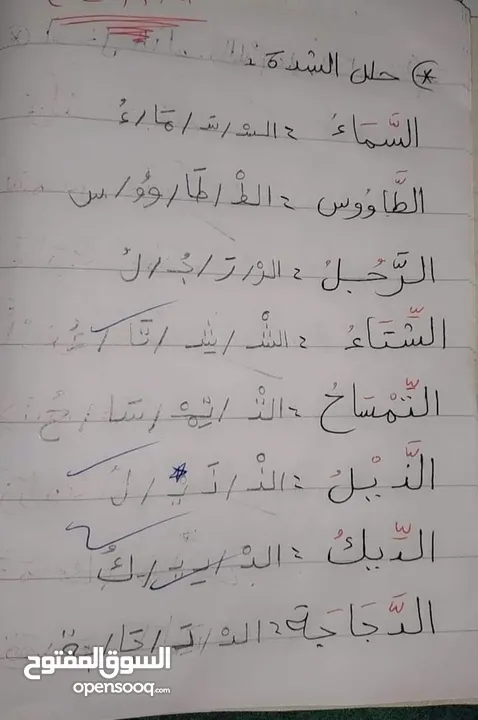 * حلل الشدة :
السَّمَاءُ : السْ / سَ / مَا / ءُ
الطَّاوُوس : الطْ / طَا / وُو / س
الرَّجُلُ : الرْ / رَ / جُ / لُ
الشِّتَاءُ : الشْ / شِ / تَا / ءُ
التِّمْسَاحُ : التْ / تِمْ / سَا / حُ
الذَّيْلُ : الذْ / ذَيْ / لُ
الدِّيكُ : الدْ / دِيـ / كُ
الدَّجَاجَة : الدْ / دَ / جَا / جَة
السوق المفتوح
opensooq.com